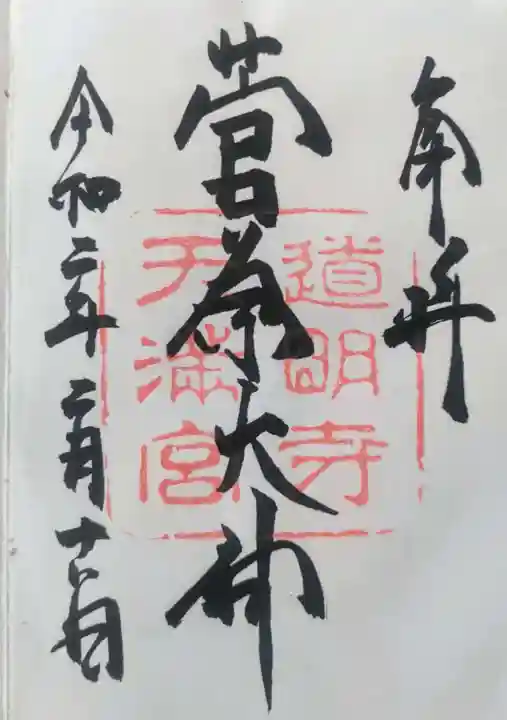 奉拝
菅公大神
道明寺
天満宮
令和二年二月十六日